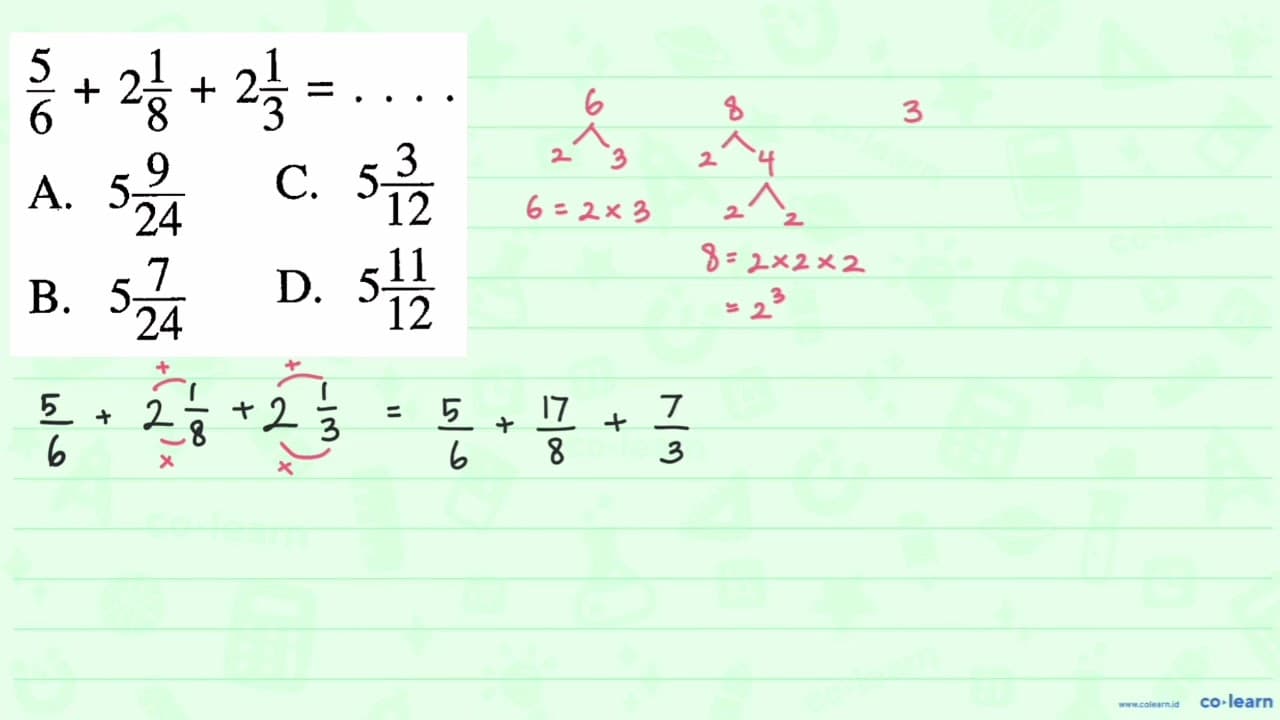 5/6 + 2 1/8 + 2 1/3 = . . . .
A. 5 9/24 C. 5 3/12
B. 5 7/24 D. 5 11/12
6 8 3
2 3 2 4
6 = 2 × 3 2 2
8 = 2 × 2 × 2
= 2³
+ +
5/6 + 2 1/8 + 2 1/3 = 5/6 + 17/8 + 7/3
× ×
co·learn
www.colearn.id co·learn